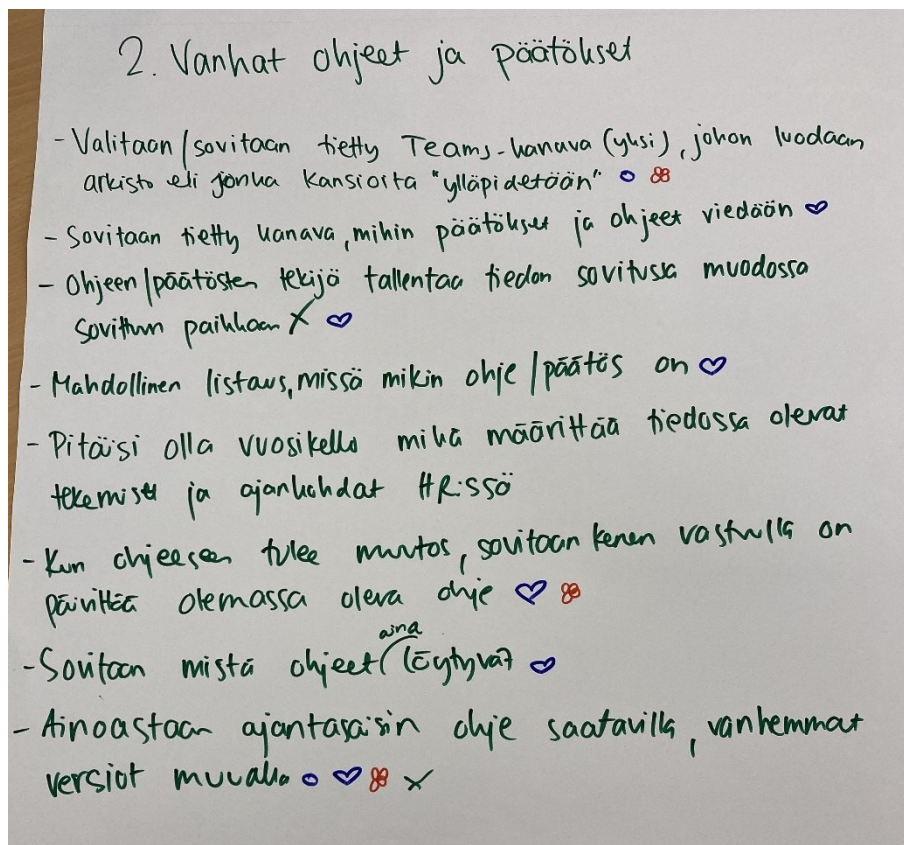 2. Vanhat ohjeet ja päätökset
- Valitaan/sovitaan tietty Teams-kanava (yksi), johon luodaan
arkisto eli jonka kansioita "ylläpidetään"
- Sovitaan tietty kanava, mihin päätökset ja ohjeet viedään
- Ohjeen/päätösten tekijä tallentaa tiedon sovitussa muodossa
sovittuun paikkaan X
- Mahdollinen listaus, missä mikin ohje/päätös on
- Pitäisi olla vuosikello mikä määrittää tiedossa olevat
tekemiset ja ajankohdat HR:ssä
- Kun ohjeeseen tulee muutos, sovitaan kenen vastuulla on
päivittää olemassa oleva ohje
- Sovitaan mistä ohjeet aina löytyvät
- Ainoastaan ajantasaisin ohje saatavilla, vanhemmat
versiot muualla X